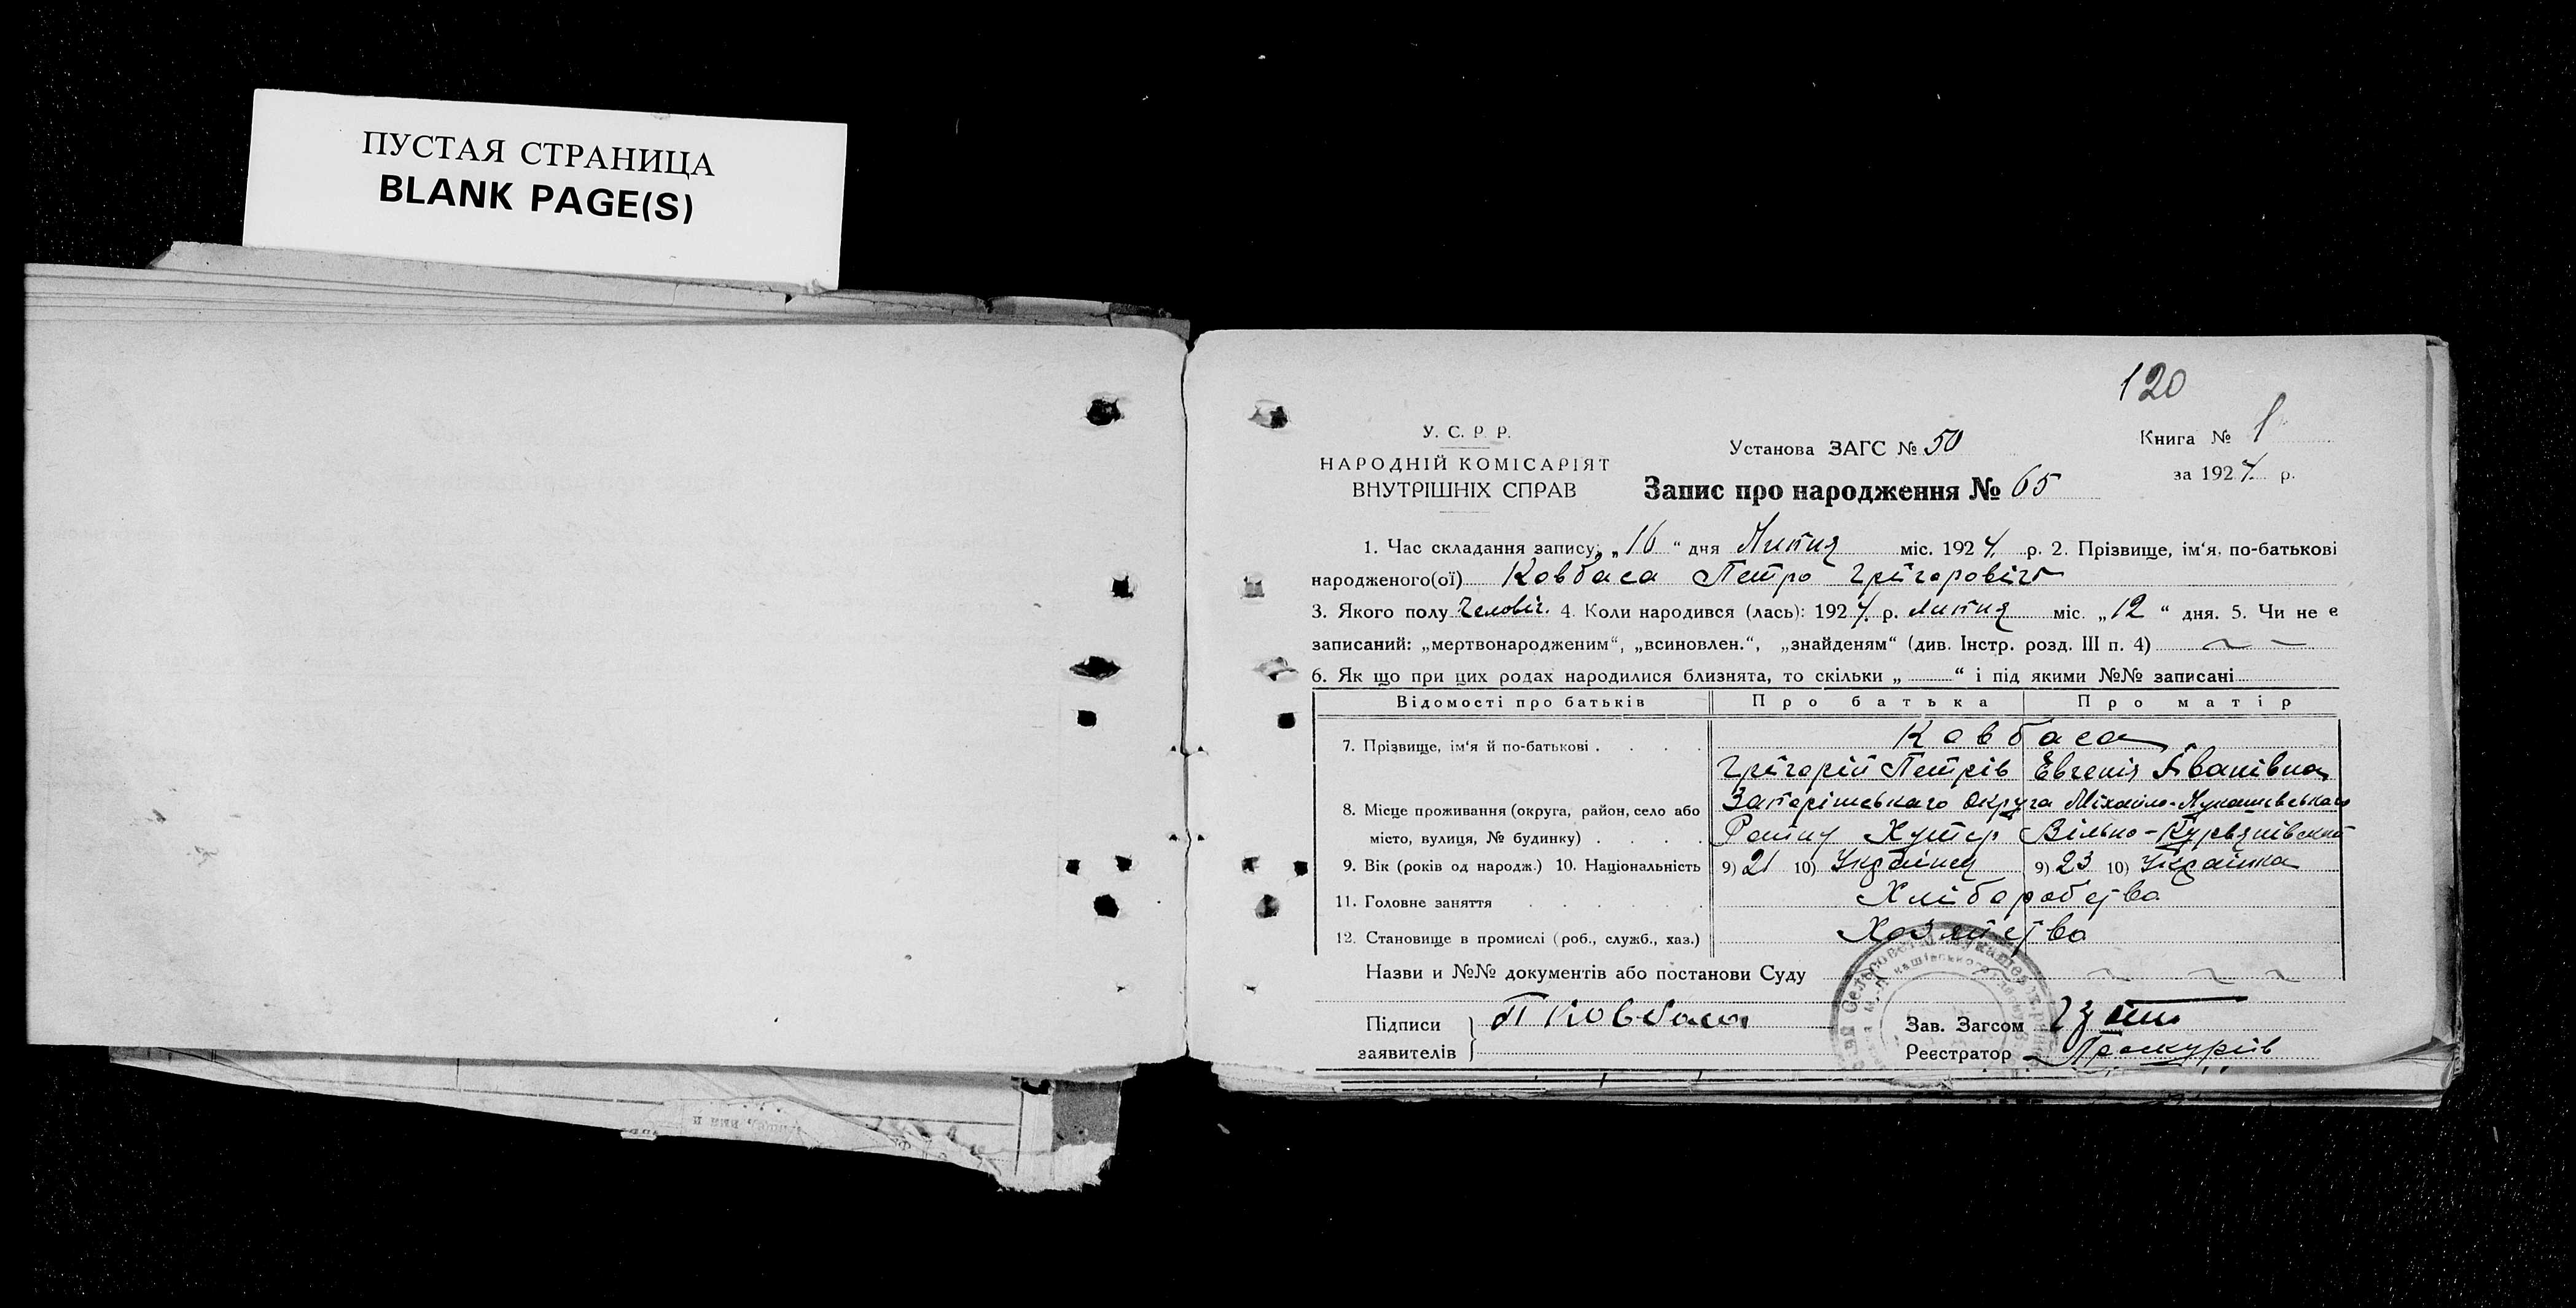 ПУСТАЯ СТРАНИЦА
BLANK PAGE(S)
120
У. С. Р. Р.
НАРОДНІЙ КОМІСАРІЯТ
ВНУТРІШНІХ СПРАВ
Установа ЗАГС № 50
Запис про народження № 65
Книга № 1
за 1924 р.
1. Час складання запису: „16“ дня Липня міс. 1924 р. 2. Прізвище, ім‘я, по-батькові
народженого(ої) Ковбаса Петро Григоровіч
3. Якого полу Человіч. 4. Коли народився (лась): 1924 р. Липня міс. „12“ дня. 5. Чи не є
записаний: „мертвонародженим“, „всиновлен.“, „знайденям“ (див. Інстр. розд. III п. 4)
6. Як що при цих родах народилися близнята, то скільки „ “ і під якими №№ записані
Відомості про батьків Про батька Про матір
7. Прізвище, ім‘я й по-батькові Ковбаса
Григорій Петрів Евгенія Іванівна
8. Місце проживання (округа, район, село або Запорішського Округа Міхайло-Лукашевського
місто, вулиця, № будинку) Хутер Вільно-
9. Вік (років од народж.) 10. Національність 9) 21 10) Українец 9) 23 10) Українка
11. Головне заняття Хліборобство
12. Становище в промислі (роб., служб., хаз.) Хозяйство
Назви и №№ документів або постанови Суду
Підписи П Ковбаса
заявителів
Зав. Загсом
Реєстратор